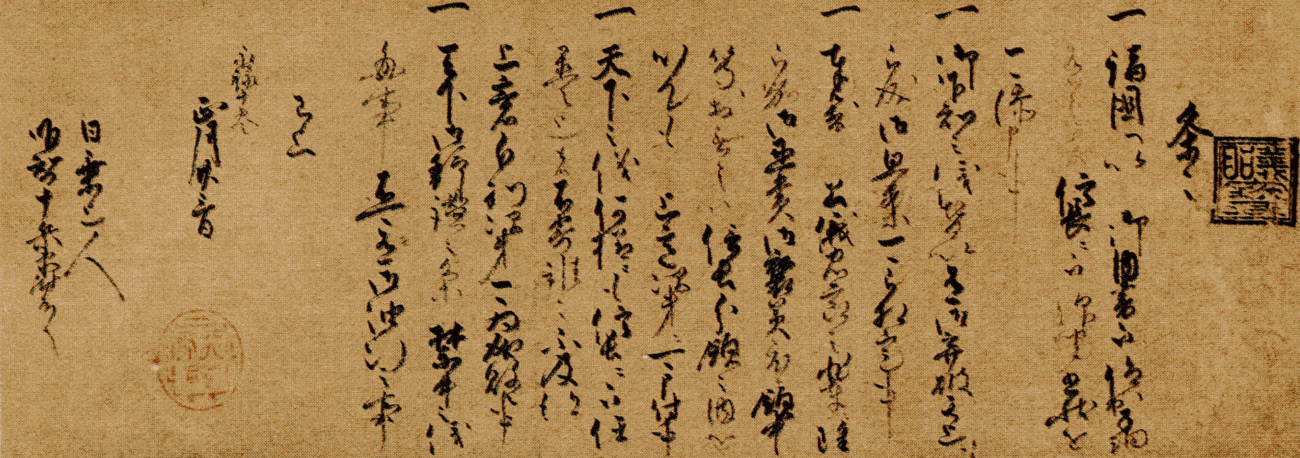 義昭寶
条々
一 諸国へ以 御内書被仰出子細
有之者 信長ニ被仰聞書状を
可添申事
一 御下知之儀皆以有御棄破其上
被成御思案可被相定事
一 奉対 公儀忠節之輩ニ雖
可被加御恩賞御褒美度領中
等於無之ハ信長分領之内を
以ても 上意次第ニ可申付事
一 天下之儀何様ニも信長ニ被任
置之上者不寄誰々不及得
上意分別次第可為成敗事
一 天下御静謐之条 禁中之儀
毎事 不可有御油断之事
已上
永禄十参
正月廿三日
日乗上人
明智十兵衛尉殿